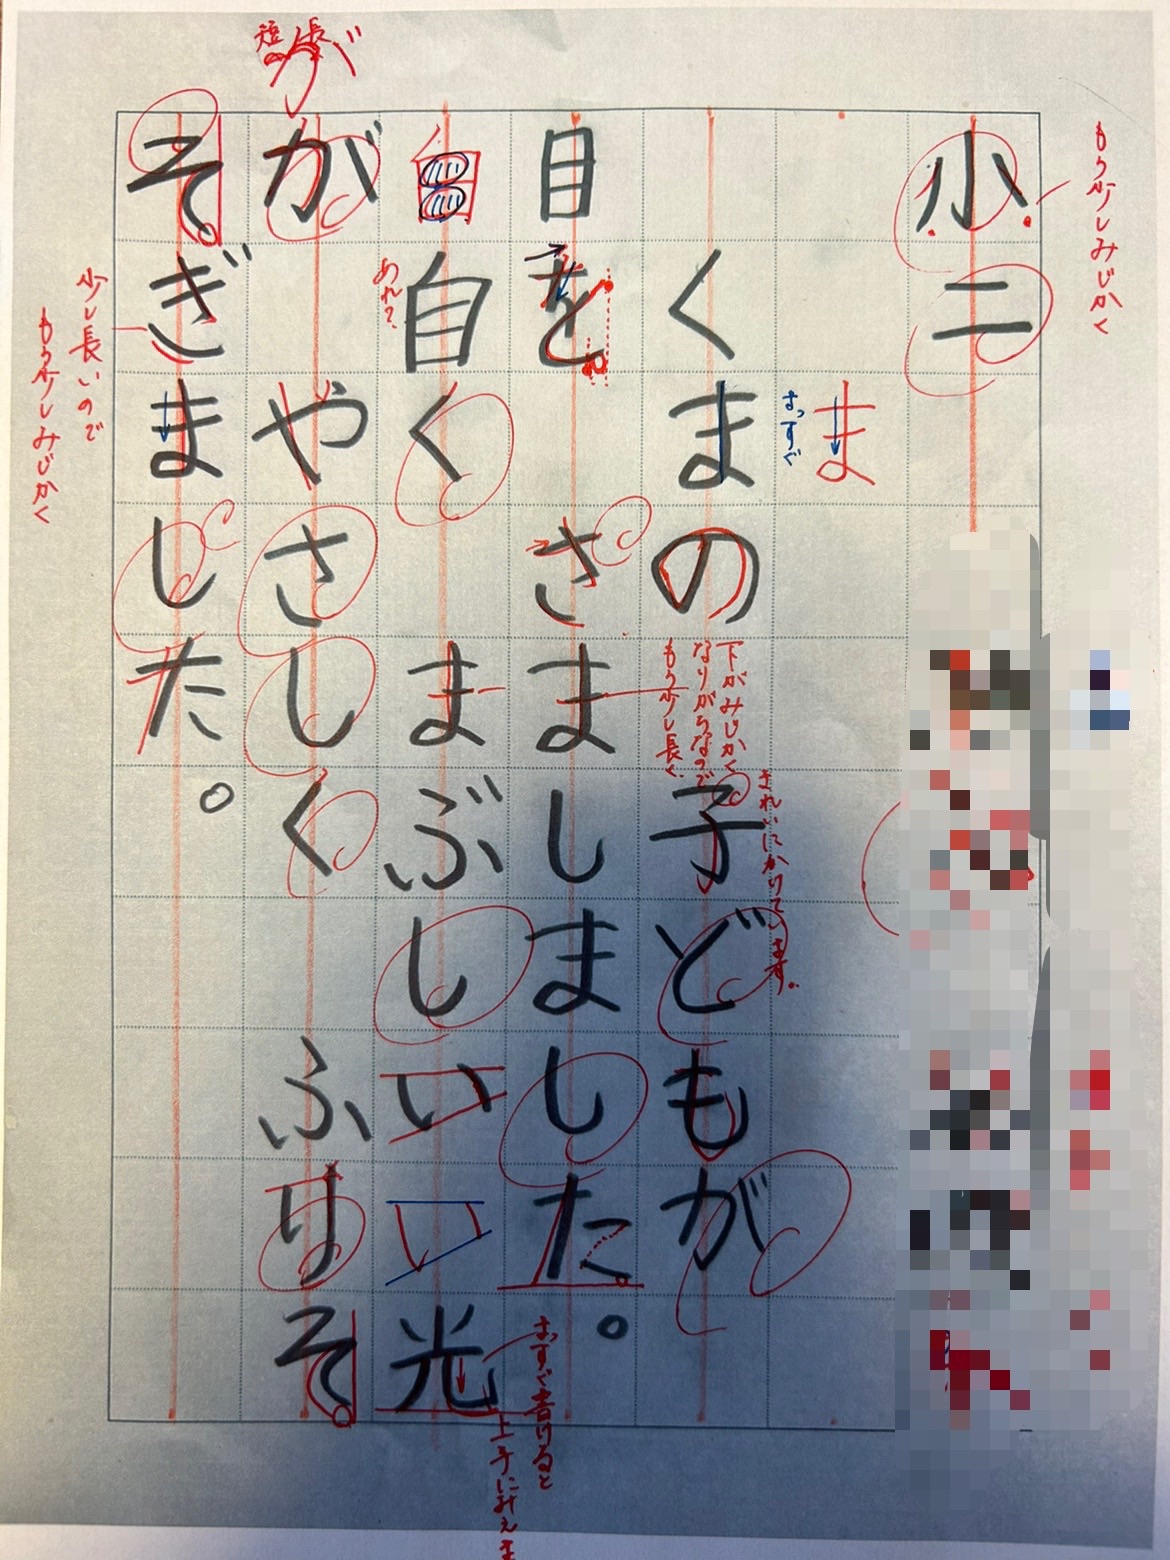 もう少しみじかく
小二
ま
まっすぐ
くまの子どもが
下がみじかく
なりがちなので
もう少し長く
きれいにかけています。
目を さましました。
まっすぐ書けると
上手に見えま
自く まぶしい光
あれ?
短 長
が
が やさしく ふりそ
そぎました。
少し長いので
もう少しみじかく